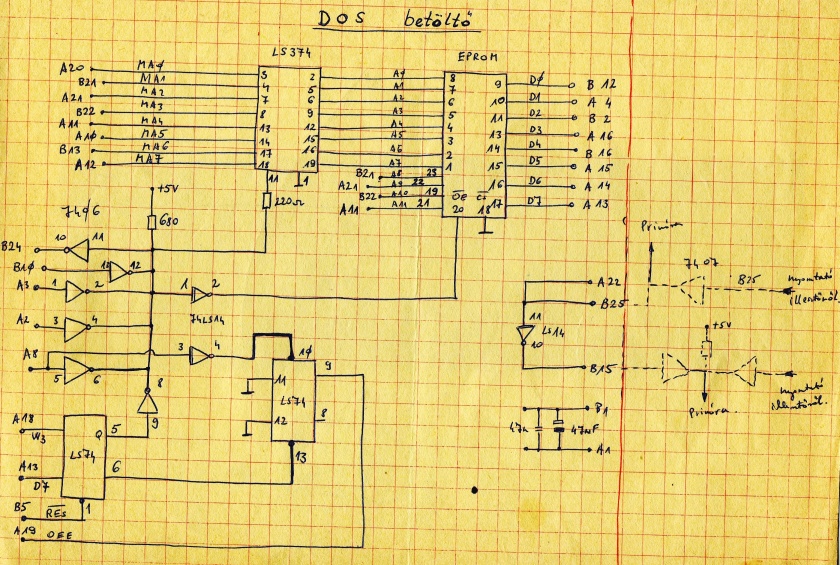 DOS betöltő
LS374
EPROM
A20 MAφ 3 2 Aφ 8 9 Dφ B 12
B21 MA1 4 5 A1 7 10 D1 A 4
A21 MA2 7 6 A2 6 11 D2 B 2
B22 MA3 8 9 A3 5 13 D3 A 16
A11 MA4 13 12 A4 4 14 D4 B 16
A1φ MA5 14 15 A5 3 15 D5 A 15
B13 MA6 17 16 A6 2 16 D6 A 14
A12 MA7 18 19 A7 1 17 D7 A 13
11 1
B21 A8 23
A21 A9 22
B22 A10 19
A11 A11 21
OE CS
20 18
+5V
220Ω
680
74φ6
B24 10 11
B1φ 13 12
A3 1 2 1 2
74LS14
A2 3 4
A8 5 6 3 4
8
9
1φ
11 9
LS74
12 8
13
A18 W3 Q 5
LS74
A13 D7 6
B5 RES 1
A19 OEE
A22
B25
11
LS14
10
B15
B1
47n 47µF
A1
Primóra
7407
B25
nyomtató
illesztőről.
+5V
nyomtató
illesztőről.
Primóra